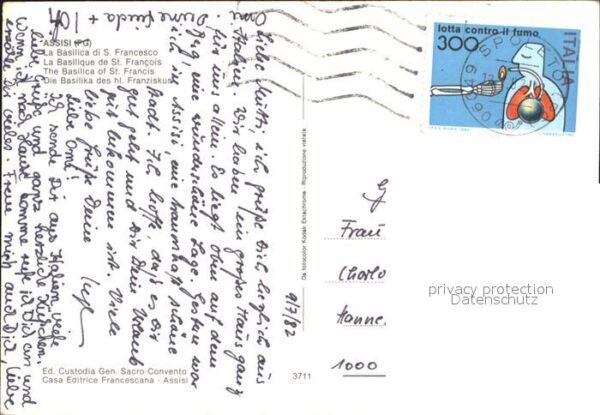 ASSISI (PG)
La Basilica di S. Francesco
La Basilique de St. François
The Basilica of St. Francis
Die Basilika des hl. Franziskus
Liebe Mutti, ich grüße Dich herzlich aus
Italien. Wir haben ein großes Haus ganz
für uns allein. Es liegt oben auf dem
Berg, eine wunderschöne Lage. Gestern war
ich in Assisi, eine traumhaft schöne
Stadt. Ich hoffe, daß es Dir
gut geht und Dir Dein Urlaub
gut bekommen ist. Viele
liebe Grüße Deine
Liebe Omi!
ich sende Dir aus Italien viele
liebe Grüße und ganz herzliche Küßchen.
Wenn ich nach Hause komme ruf ich Dich an und
erzähle Dir vieles. Freue mich auf Dich, liebe
9/7/82
Ed. Custodia Gen. Sacro Convento
Casa Editrice Francescana - Assisi
3711
Da fotocolor Kodak Ektachrome - Riproduzione vietata
lotta contro il fumo
300
ITALIA
SPOLETO
06049
Frau
Hanne
1000
privacy protection
Datenschutz